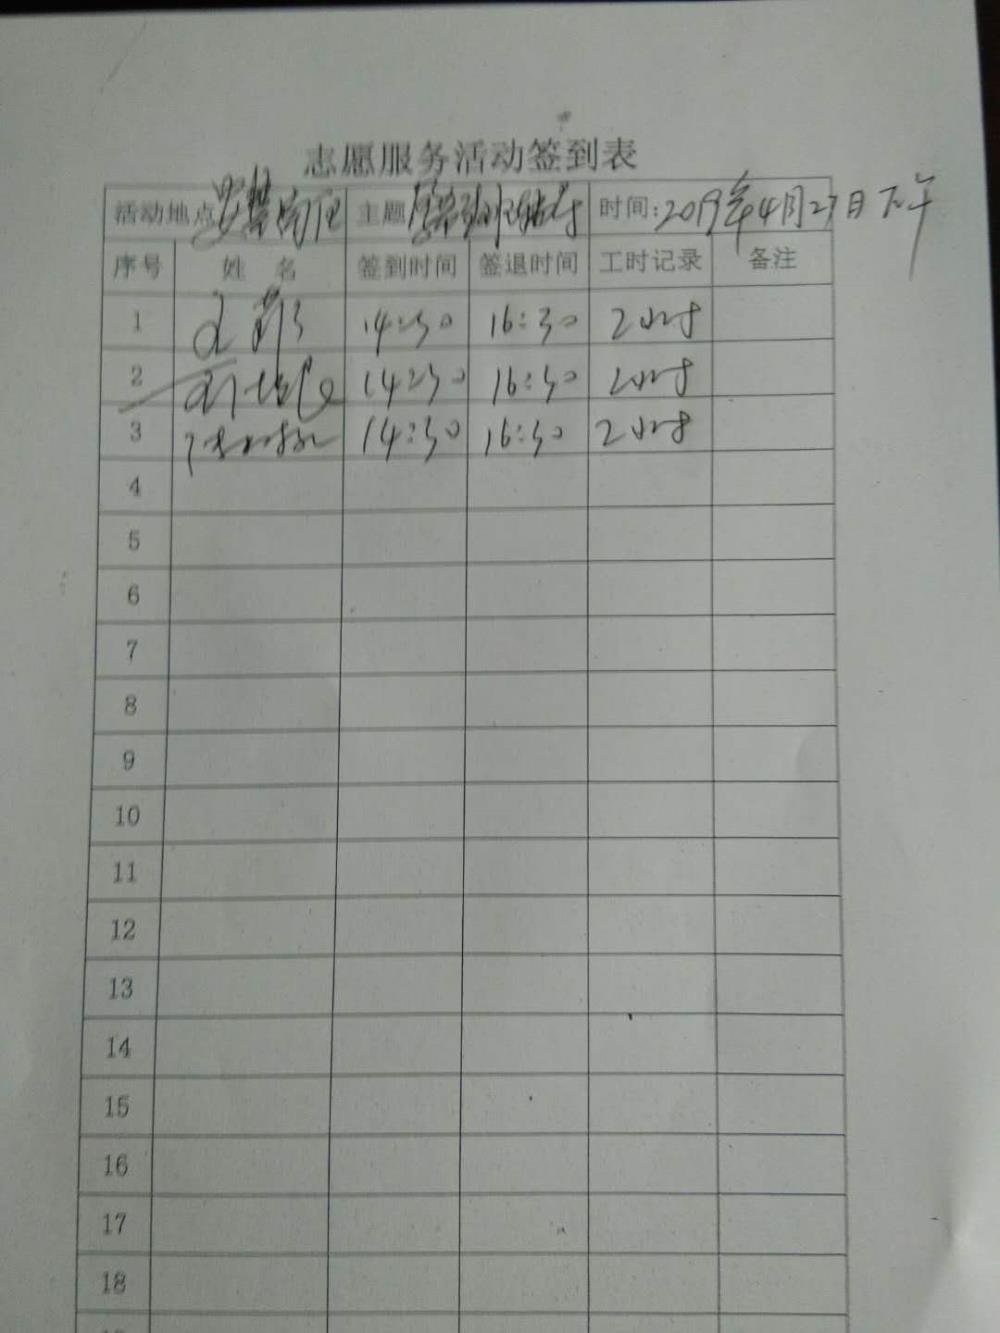 志愿服务活动签到表
活动地点 主题 时间:2019年4月27日下午
序号 姓 名 签到时间 签退时间 工时记录 备注
1 14:30 16:30 2小时
2 14:30 16:30 2小时
3 14:30 16:30 2小时
4
5
6
7
8
9
10
11
12
13
14
15
16
17
18